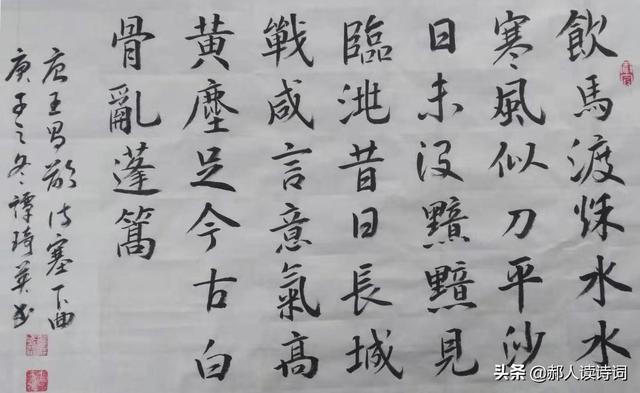 飲馬渡秋水水
寒風似刀平沙
日未没黯黯見
臨洮昔日長城
戰咸言意氣高
黄塵足今古白
骨亂蓬蒿
唐王昌龄诗塞下曲
庚子之冬譚琦英书
头条 @郝人读诗词